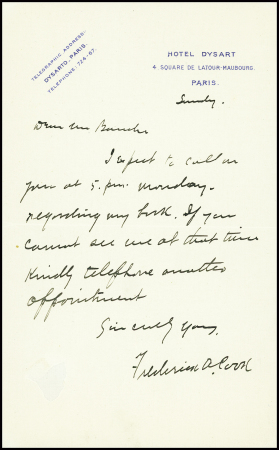 TELEGRAPHIC ADDRESS.
DYSARTO, PARIS.
TELEPHONE 724-67.
HOTEL DYSART
4 SQUARE DE LATOUR-MAUBOURG.
PARIS.
Sunday.
Dear Mr
I expect to call on
you at 5. p.m. Monday-
regarding my book. If you
cannot see me at that time
Kindly telephone another
appointment
Sincerely yours,
Frederick A. Cook